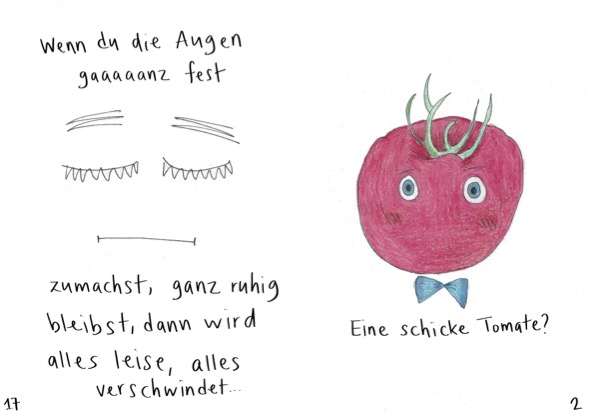 Wenn du die Augen
gaaaaanz fest
zumachst, ganz ruhig
bleibst, dann wird
alles leise, alles
verschwindet...
17
Eine schicke Tomate?
2